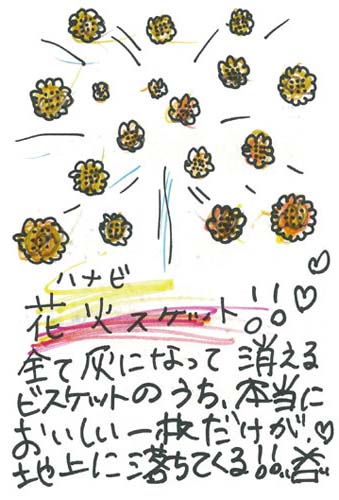 ハナビ
花火スケット!!♡♡
全て灰になって消える
ビスケットのうち、本当に
おいしい一枚だけが♡
地上に落ちてくる!!